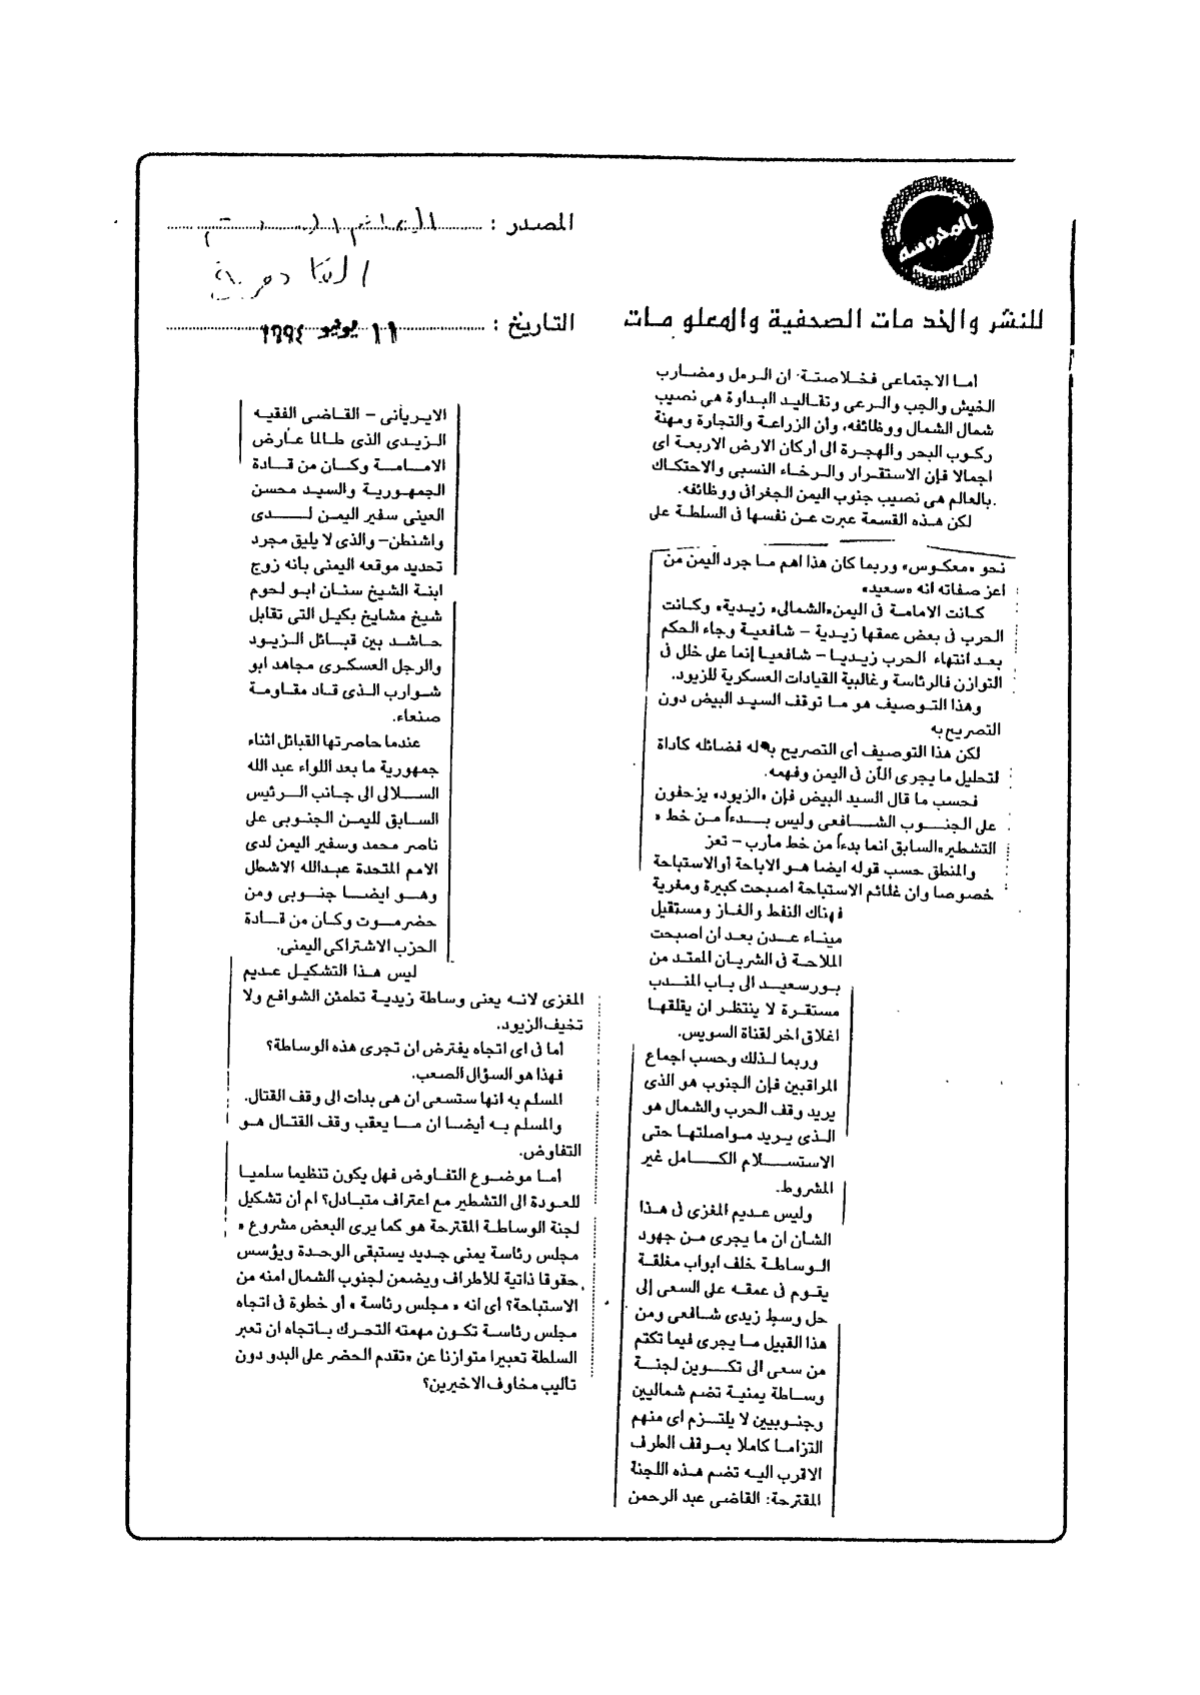 المحروسة
للنشر والخدمات الصحفية والمعلومات
المصدر :
القاهرية
التاريخ : ١٦ يونيو ١٩٩٤
أما الاجتماعى فخلاصتة ان الرمل ومضارب
الخيش والجب والرعى وتقاليد البداوة هى نصيب
شمال الشمال ووظائفه، وأن الزراعة والتجارة ومهنة
ركوب البحر والهجرة الى أركان الارض الاربعة اى
اجمالا فإن الاستقرار والرخاء النسبى والاحتكاك
بالعالم هى نصيب جنوب اليمن الجغرافى ووظائفه.
لكن هذه القسمة عبرت عن نفسها فى السلطة على
نحو «معكوس» وربما كان هذا اهم ما جرد اليمن من
اعز صفاته انه «سعيد»
كانت الامامة فى اليمن «الشمالى» زيدية» وكانت
الحرب فى بعض عمقها زيدية – شافعية وجاء الحكم
بعد انتهاء الحرب زيديا – شافعيا إنما على خلل فى
التوازن فالرئاسة وغالبية القيادات العسكرية للزيود.
وهذا التوصيف هو ما توقف السيد البيض دون
التصريح به
لكن هذا التوصيف أى التصريح به له فضائله كأداة
لتحليل ما يجرى الآن فى اليمن وفهمه.
فحسب ما قال السيد البيض فإن «الزيود» يزحفون
على الجنوب الشافعى وليس بدءاً من خط «
التشطير» السابق انما بدءاً من خط مأرب – تعز
والمنطق حسب قوله ايضا هو الاباحة أوالاستباحة
خصوصا وان غلائم الاستباحة اصبحت كبيرة ومغرية
فهناك النفط والغاز ومستقبل
ميناء عدن بعد ان اصبحت
الملاحة فى الشريان الممتد من
بورسعيد الى باب المندب
مستقرة لا ينتظر ان يقلقها
اغلاق اخر لقناة السويس.
وربما لذلك وحسب اجماع
المراقبين فإن الجنوب هو الذى
يريد وقف الحرب والشمال هو
الذى يريد مواصلتها حتى
الاستسلام الكامل غير
المشروط.
وليس عديم المغزى فى هذا
الشان ان ما يجرى من جهود
الوساطة خلف ابواب مغلقة
يقوم فى عمقه على السعى إلى
حل وسط زيدى شافعى ومن
هذا القبيل ما يجرى فيما تكتم
من سعى الى تكوين لجنة
وساطة يمنية تضم شماليين
وجنوبيين لا يلتزم اى منهم
التزاما كاملا بموقف الطرف
الاقرب اليه تضم هذه اللجنة
المقترحة: القاضى عبد الرحمن
الايريأنى – القاضى الفقيه
الزيدى الذى طالما عارض
الامامة وكان من قادة
الجمهورية والسيد محسن
العينى سفير اليمن لدى
واشنطن– والذى لا يليق مجرد
تحديد موقعه اليمنى بانه زوج
ابنة الشيخ سنان ابو لحوم
شيخ مشايخ بكيل التى تقابل
حاشد بين قبائل الزيود
والرجل العسكرى مجاهد ابو
شوارب الذى قاد مقاومة
صنعاء.
عندما حاصرتها القبائل اثناء
جمهورية ما بعد اللواء عبد الله
السلالى الى جانب الرئيس
السابق لليمن الجنوبى على
ناصر محمد وسفير اليمن لدى
الامم المتحدة عبدالله الاشطل
وهو ايضا جنوبى ومن
حضرموت وكان من قادة
الحزب الاشتراكى اليمنى.
ليس هذا التشكيل عديم
المغزى لانه يعنى وساطة زيدية تطمئن الشوافع ولا
تخيف الزيود.
أما فى اى اتجاه يفترض ان تجرى هذه الوساطة؟
فهذا هو السؤال الصعب.
المسلم به انها ستسعى ان هى بدأت الى وقف القتال.
والمسلم به أيضا ان ما يعقب وقف القتال هو
التفاوض.
أما موضوع التفاوض فهل يكون تنظيما سلميا
للعودة الى التشطير مع اعتراف متبادل؟ ام أن تشكيل
لجنة الوساطة المقترحة هو كما يرى البعض مشروع «
مجلس رئاسة يمنى جديد يستبقى الوحدة ويؤسس
حقوقا ذاتية للأطراف ويضمن لجنوب الشمال امنه من
الاستباحة؟ أى انه « مجلس رئاسة » أو خطوة فى اتجاه
مجلس رئاسة تكون مهمته التحرك باتجاه ان تعبر
السلطة تعبيرا متوازنا عن «تقدم الحضر على البدو دون
تأليب مخاوف الاخيرين؟